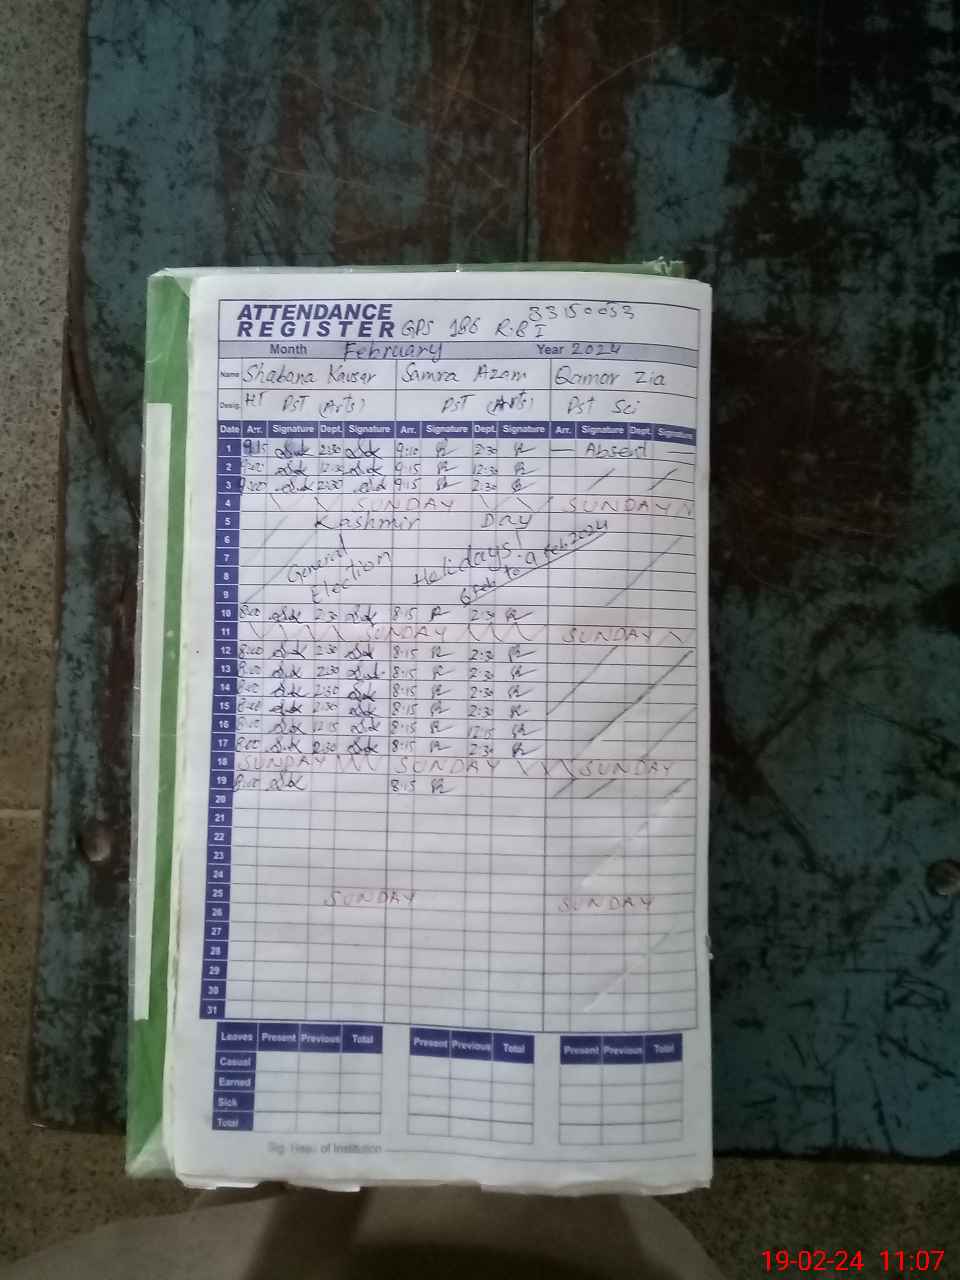 ATTENDANCE 33150053
REGISTER GPS 186 R.B I
Month February Year 2024
Name Shabana Kausar Samra Azam Qamar Zia
Desig. HT PST (Arts) PST (Arts) PST Sci
Date Arr. Signature Dept. Signature Arr. Signature Dept. Signature Arr. Signature Dept. Signature
1 9:15 2:30 9:10 2:30 — Absent —
2 9:00 12:30 9:15 12:30
3 9:00 2:30 9:15 2:30
4 SUNDAY SUNDAY
5 Kashmir Day
6
7 General Holidays!
8 Election 6 Feb to 9 Feb 2024
9
10 8:00 2:30 8:15 2:30
11 SUNDAY SUNDAY
12 8:00 2:30 8:15 2:30
13 8:00 2:30 8:15 2:30
14 8:00 2:30 8:15 2:30
15 8:00 2:30 8:15 2:30
16 8:00 12:15 8:15 12:15
17 8:00 2:30 8:15 2:30
18 SUNDAY SUNDAY SUNDAY
19 8:00 8:15
20
21
22
23
24
25 SUNDAY SUNDAY
26
27
28
29
30
31
Leaves Present Previous Total Present Previous Total Present Previous Total
Casual
Earned
Sick
Total
Sig. Head of Institution
19-02-24 11:07